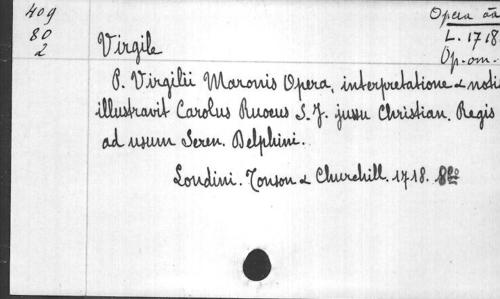 409
80
2
Opera
L. 1718
Op. om.
Virgile
P. Virgilii Maronis Opera, interpretatione & noti
illustravit Carolus Ruoeus S. J. jussu Christian. Regis
ad usum Seren. Delphini.
Londini. Tonson & Churchill. 1718. 8º